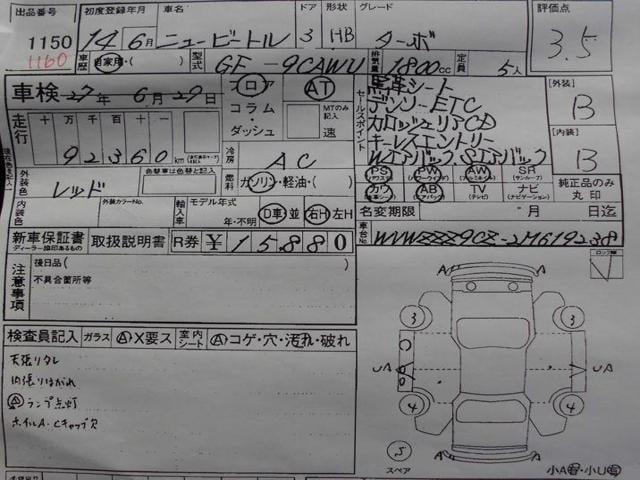 出品番号 初度登録年月 車名 ドア 形状 グレード 評価点
1150 14年 6月 ニュービートル 3 HB ターボ 3.5
1160 車歴 自家用・( ) 型式 GF-9CAWU 排気量 1800cc 定員 5人
車検 27年 6月 29日 フロア AT 革シート [外装] B
コラム・ダッシュ MTのみ記入 速 セールスポイント ETC
走行 十万千百十一 カロッツェリアCD [内装] B
92360km キーレスエントリー
冷房 AC Wエアバック.SIエアバック
外装色 レッド 色替車は色替と記入 燃料 ガソリン・軽油・( ) PS PW AW SR (サンルーフ) 純正品のみ丸印
カワ AB (エアバック) TV (テレビ) ナビ (ナビゲーション)
内装色 外装カラーNo. 輸入車 モデル年式 年・不明 D車 並 右H 左H 名変期限 月 日迄
新車保証書 ディーラー捺印あるもの 取扱説明書 R券 ¥15880 車台No.
注意事項 後日品( )
不具合箇所等
検査員記入 ガラス A X要ス 室内シート A コゲ・穴・汚れ・破れ
天張りタレ
内張りはがれ
ランプ点灯
ホイルA・Cキャップ欠
A A
3 3
UA UA
4 4
5 A A
スペア 小A・小U